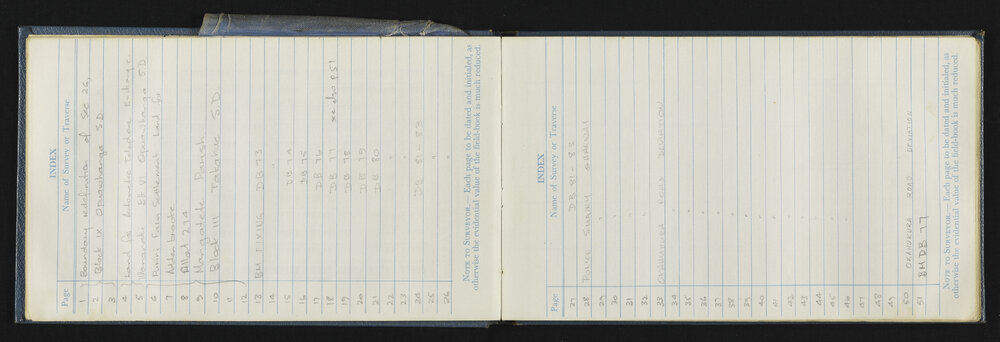 INDEX
Page Name of Survey or Traverse
1 Boundary redefinition of Sec 26,
2 Block IX Opuawhanga S.D
3
4 Land for Automatic Telephone Exchange
5 Whananaki Blk VI Opuawhanga S.D
6 Punni Farm Settlement Land for
7 Addenbrooke
8 Allot 274
9 Mangatete Parish
10 Blk III Takahue S.D.
11
12
13 BM FIXING DB 73
14 "
15 DB 74
16 DB 75
17 DB 76
18 DB 77 see also p 51
19 DB 78
20 DB 79
21 DB 80
22 "
23 "
24 DB 81-83
25 "
26 "
NOTE TO SURVEYOR.— Each page to be dated and initialed, as
otherwise the evidential value of the field-book is much reduced.
INDEX
Page Name of Survey or Traverse
27 DB 81-83
28
29 "
30 "
31 "
32 "
33 OKAHUKURA ROAD DEVIATION
34 "
35 "
36 "
37 "
38 "
39 "
40 "
41 "
42 "
43 "
44 "
45 "
46 "
47
48
49
50 OKAHUKURA ROAD DEVIATION
51 BM DB 77
NOTE TO SURVEYOR.— Each page to be dated and initialed, as
otherwise the evidential value of the field-book is much reduced.